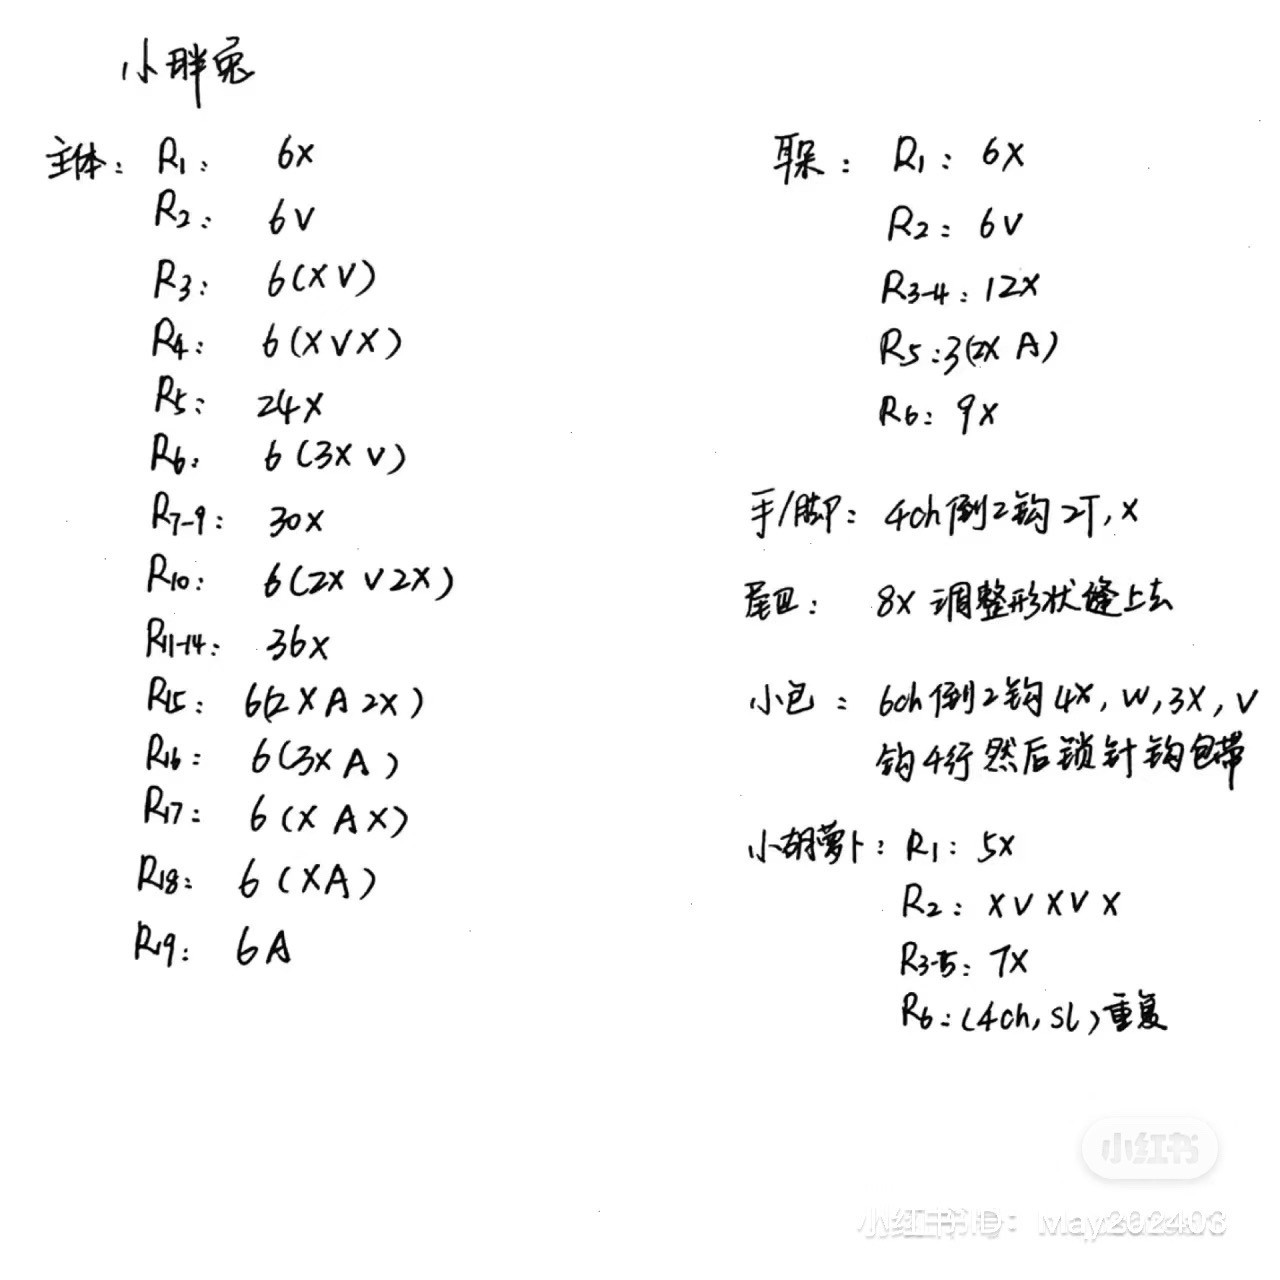 小胖兔
主体: R1: 6X
R2: 6V
R3: 6(XV)
R4: 6(XVX)
R5: 24X
R6: 6(3XV)
R7-9: 30X
R10: 6(2XV2X)
R11-14: 36X
R15: 6(2XA2X)
R16: 6(3XA)
R17: 6(XAX)
R18: 6(XA)
R19: 6A
耳朵: R1: 6X
R2: 6V
R3-4: 12X
R5: 3(2XA)
R6: 9X
手/脚: 4ch倒2钩2T,X
尾巴: 8X调整形状缝上去
小包: 6ch倒2钩4X,W,3X,V
钩4行然后锁针钩包带
小胡萝卜: R1: 5X
R2: XVXVX
R3-5: 7X
R6: (4ch,sl)重复
小红书
小红书ID: May202403